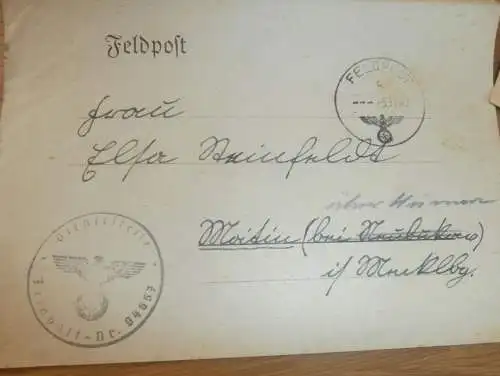 Feldpost
FELDPOST
Frau
Elsa Steinfeldt
über Wismar
Moitin (bei Neubukow)
i/ Mecklbg.
Dienststelle
Feldpost-Nr. 04657